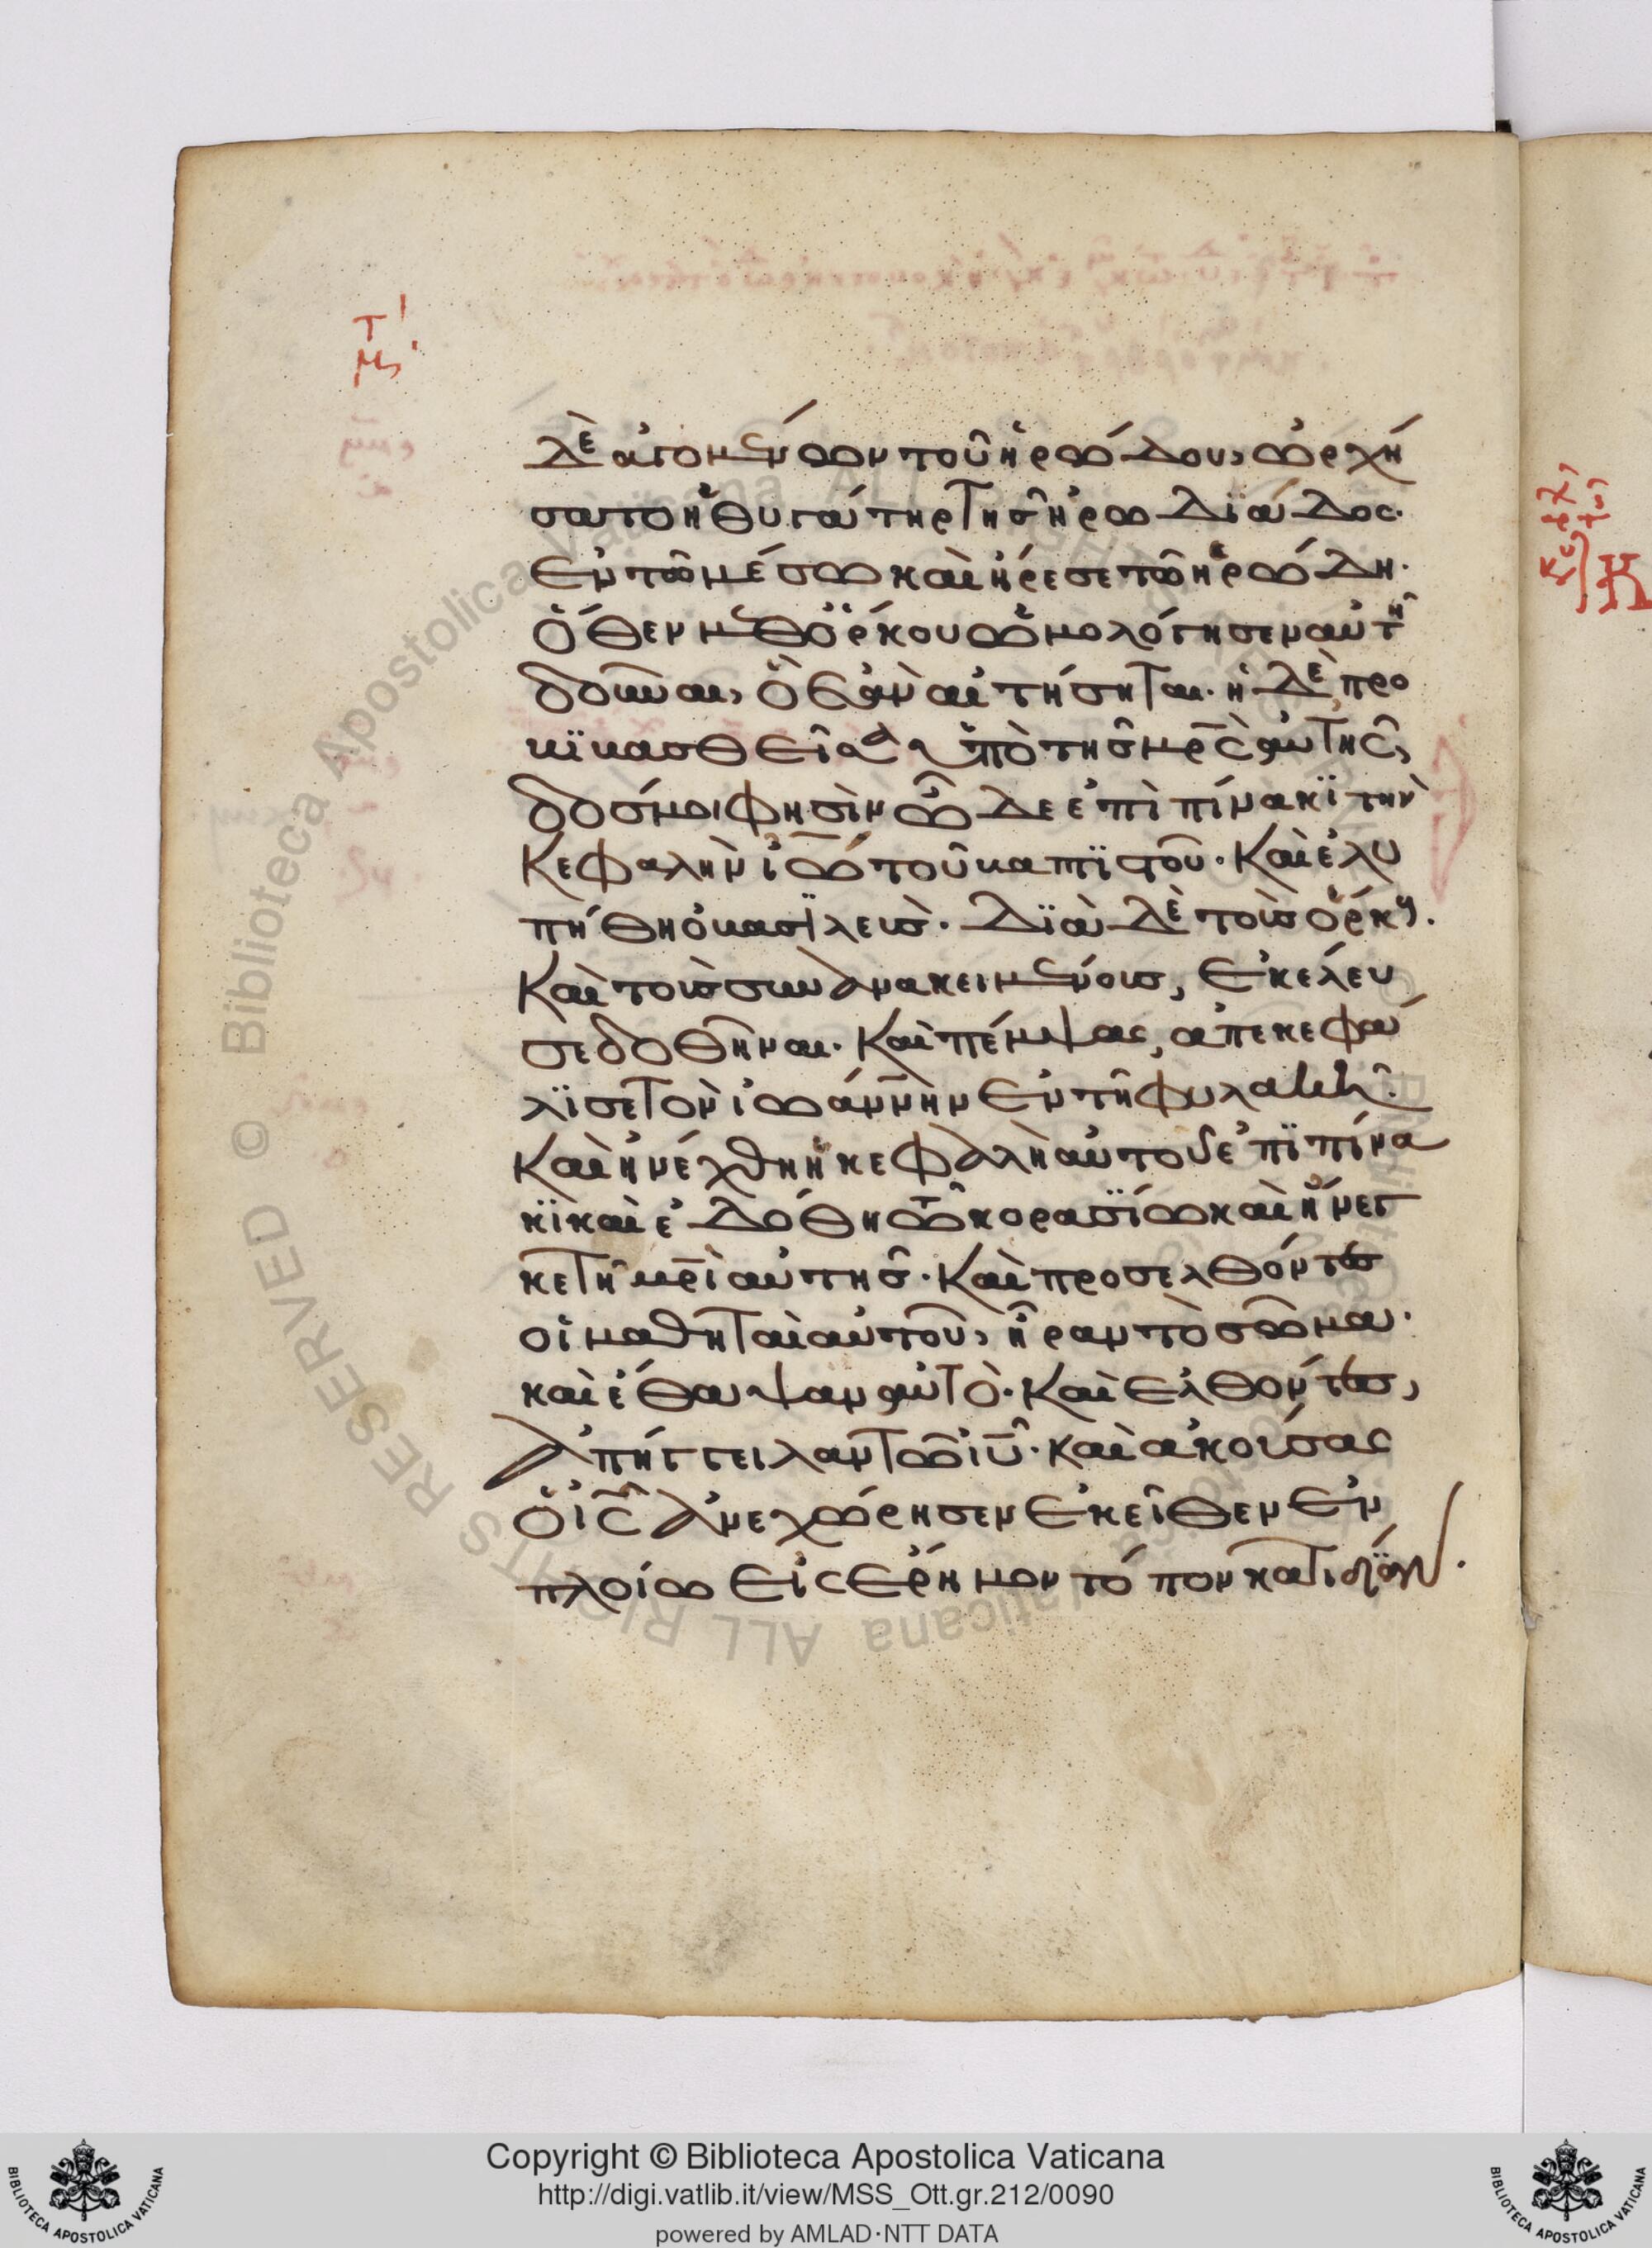 τ
με
δὲ ἀγομένων τοῦ ἡρώδου, ὠρχή
σατο ἡ θυγάτηρ τῆς ἡρωδϊάδος·
ἐν τῶ μέσω καὶ ἤρεσε τῶ ἡρώδη·
ὅθεν μεθ ὅρκου ὡμολόγησεν αὐτῆ
δοῦναι, ὃ ἐὰν αἰτήσηται· ἡ δὲ προ
βϊβασθεῖσα ὑπὸ τῆς μρς αὐτῆς,
δός μοι φησὶν ὧδε ἐπὶ πίνακϊ τὴν
κεφαλὴν ἰω τοῦ βαπτϊστοῦ· Καὶ ἐλυ
πήθη ὁ βασϊλεὺς· Δϊὰ δὲ τοὺς ὅρκους·
Καὶ τοὺς συνἀνακειμένους, ἐκέλευ
σε δοθῆναι· Καὶ πέμψας, ἀπεκεφά
λϊσε τὸν ἰωάννην ἐν τῆ φυλακῆ·
Καὶ ἠνέχθη ἡ κεφαλὴ αὐτοῦ ἐπϊ πίνα
κϊ καὶ ἐδόθη τῶ κορασϊω καὶ ἤνεγ
κε τῆ μρὶ αὐτῆς· Καὶ προσελθόντες
οἱ μαθηταὶ αὐτοῦ, ἦραν τὸ σῶμα·
καὶ ἔθαψαν αὐτὸ· Καὶ ἐλθόντες,
ἀπήγγειλαν τῶ ἰυ· καὶ ἀκούσας
ὁ ις ἀνεχώρησεν ἐκεῖθεν ἐν
πλοίω εἰς ἔρημον τόπον κατ ιδϊαν·
Copyright © Biblioteca Apostolica Vaticana
http://digi.vatlib.it/view/MSS_Ott.gr.212/0090
powered by AMLAD·NTT DATA